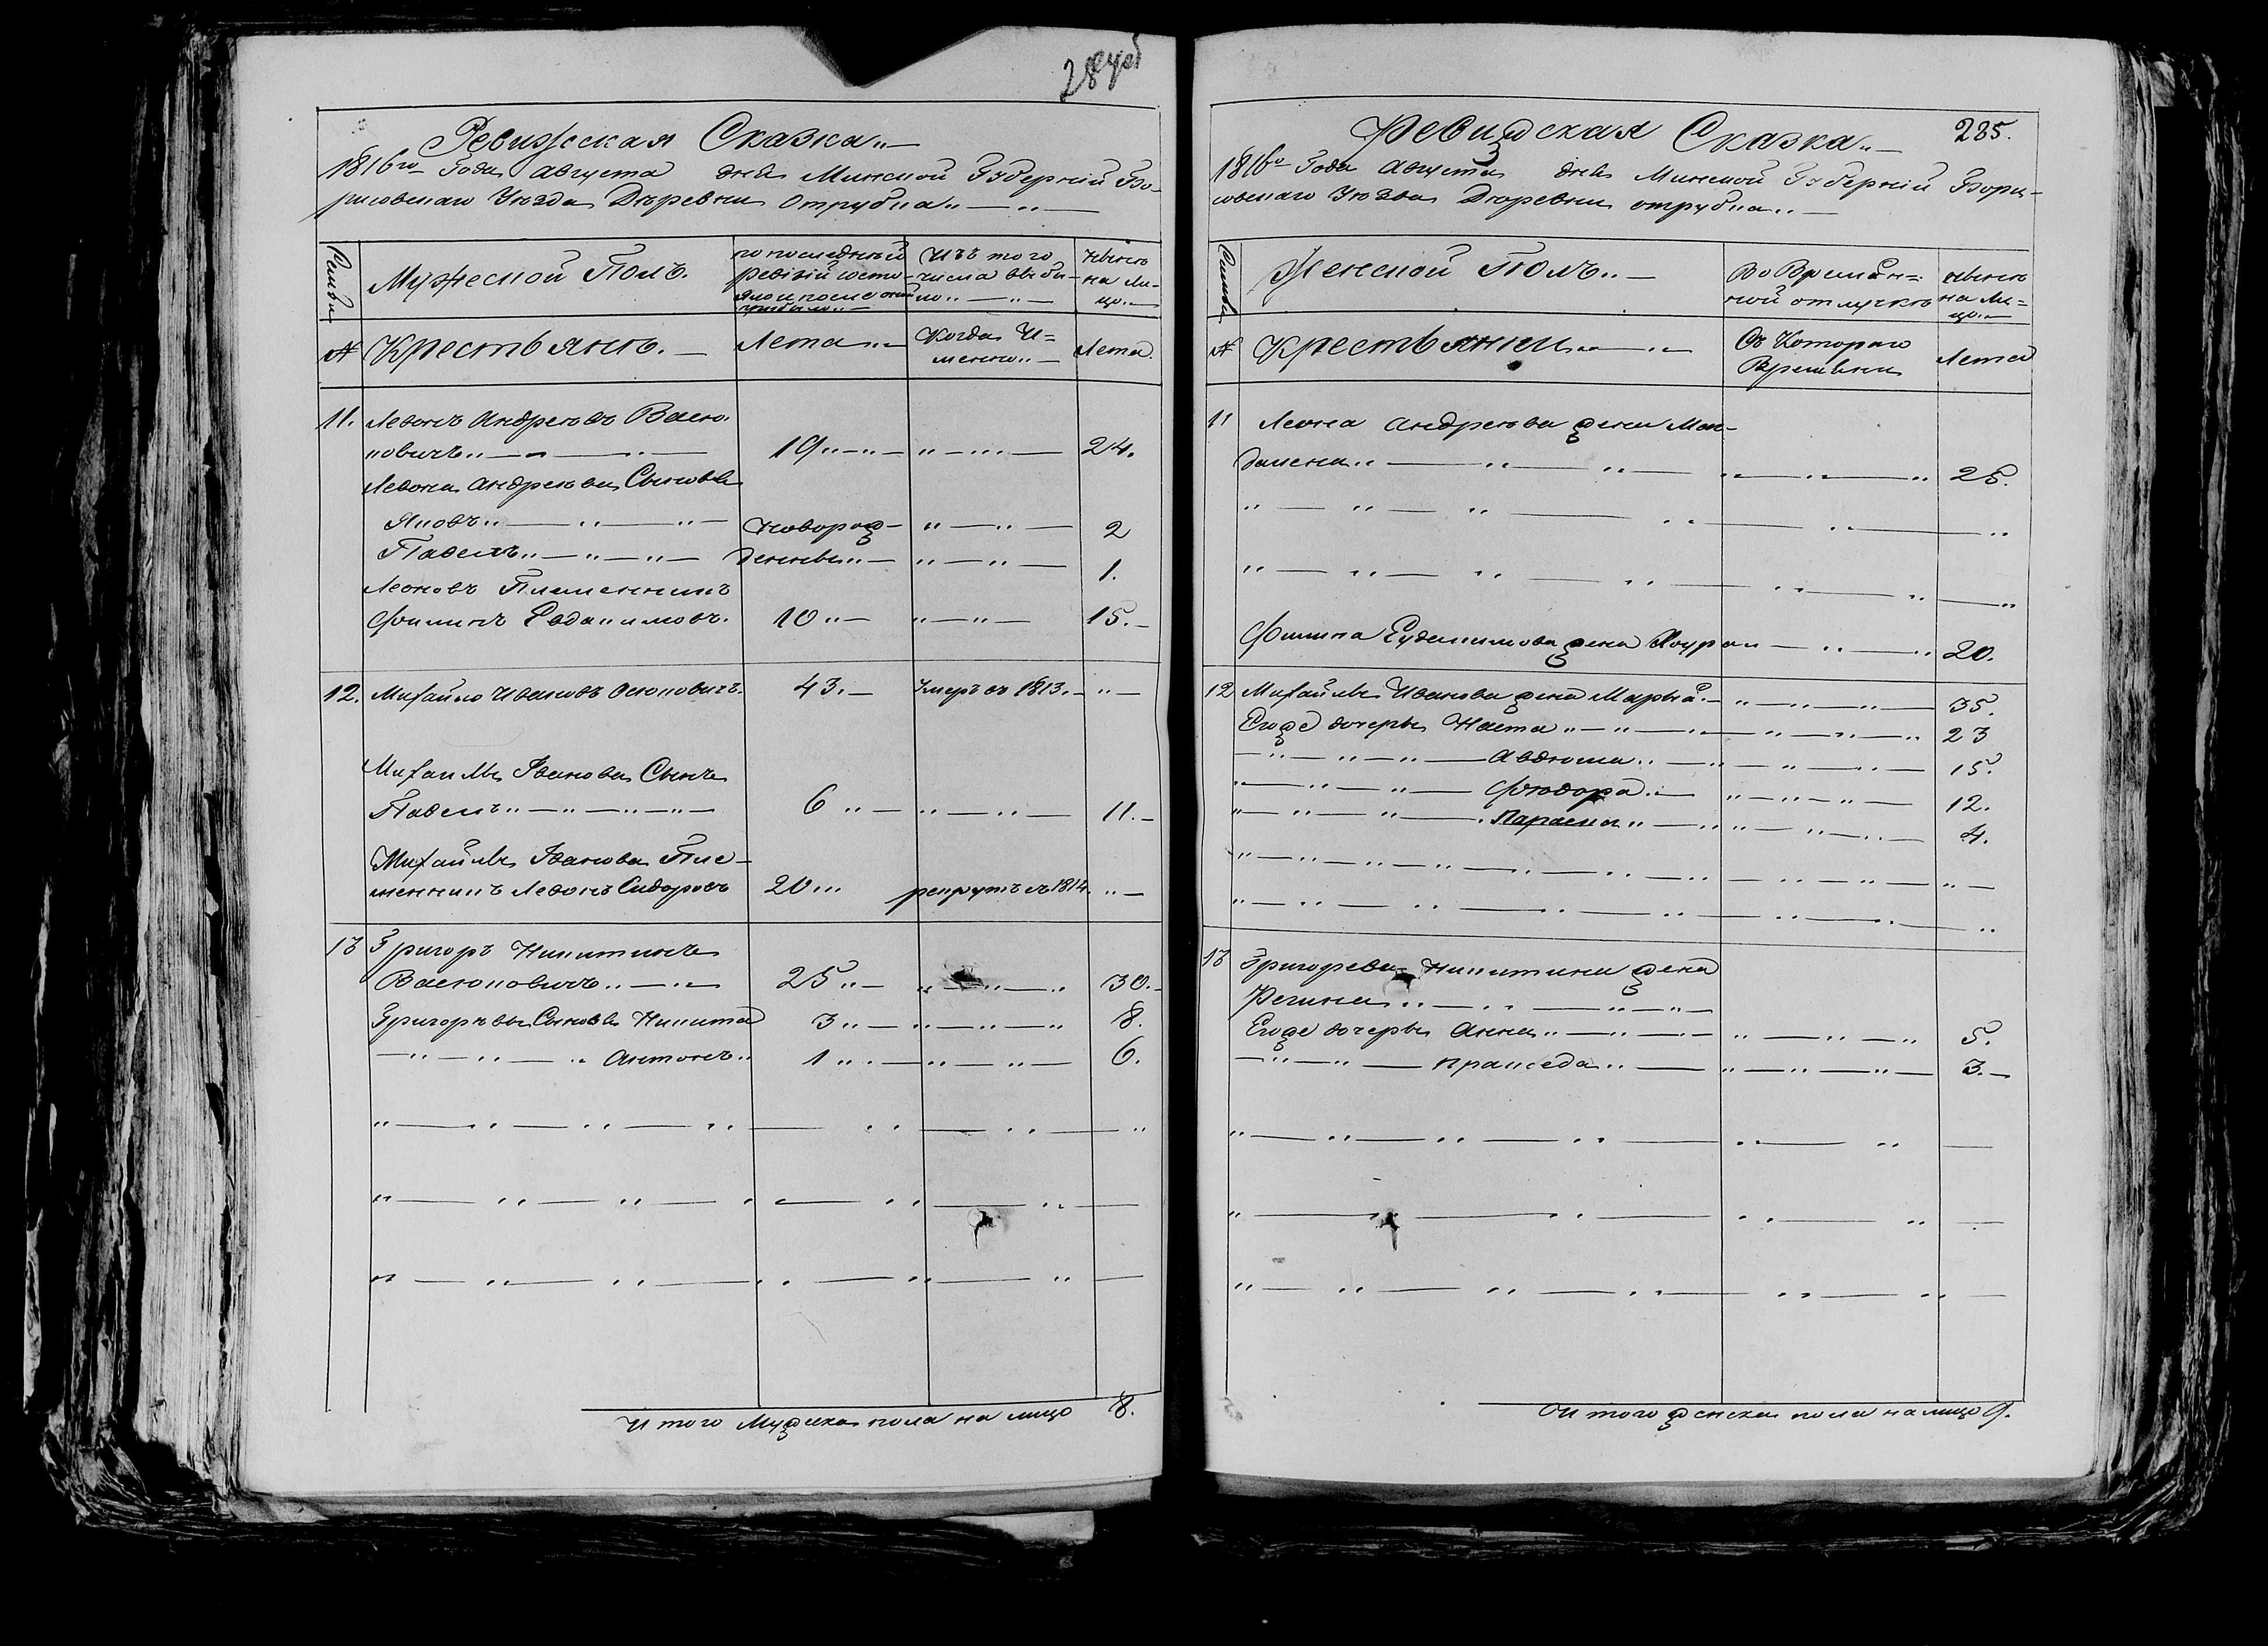 Ревизская Сказка
1816го Года августа дня Минской Губерніи Бо-
рисовскаго Уезда Деревни Отрубка
Семьи
Мужеской Полъ.
по последней
ревизіи состо-
яло и после оной
прибыло
Изъ того
числа выбы-
ло
Ныне
на ли-
цо
№
Крестьянъ.
Лета
Когда И-
менно
Лета.
11. Левонъ Андреевъ Васю-
ковичъ 19 24.
Левона Андреева Сыновья
Яковъ Новорож- 2
Павелъ денные 1.
Леоновъ Племенникъ
Филипъ Евдакимовъ. 10 15.
12. Михайло Ивановъ Осюковичъ. 43. Умеръ въ 1813.
Михайлы Иванова Сынъ
Павелъ 6 11.
Михайлы Иванова Пле-
менникъ Левонъ Сидоровъ 20 рекрутъ съ 1814.
13 Григоръ Никитинъ
Васюковичъ 25 30.
Григорьевы Сыновья Никита 3 8.
Антонъ 1 6.
И того Мужска пола на лицо 8.
Ревизская Сказка 285.
1816го Года Августа дня Минской Губерніи Бори-
совскаго Уезда Деревни отрубка
Семьи
Женской Полъ
Во Времян-
ной отлучке
Ныне
на Ли-
цо
№
Крестьянки
Съ Котораго
Времени
Лета
11 Леона Андреева жена Маг-
далена 25.
Филипа Еудакимова жена Хоура 20.
12 Михайлы Иванова жена Марья 35.
Егоже дочеры Наста 23
Авдюха 15.
Фюдора 12.
Параска 4.
13 Григорева Никитина жена
Регина
Егоже дочеры Анна 5.
Праксeда 3.
И того женска пола на лицо 9.